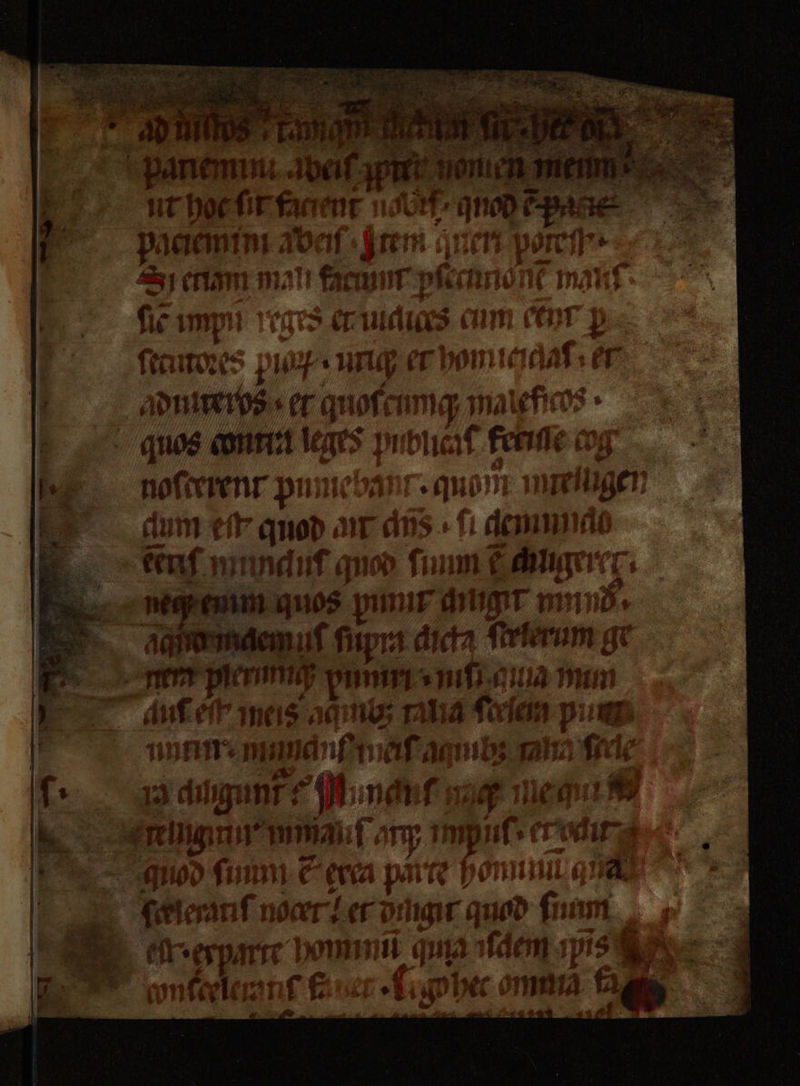 ad nullos tamqm dictum sit. hec oīa
patiemini abeis ꝓpter nomen meum.
ut hoc sit facient nobis. quod ē pane
patiemini abeis. Item queri potest.
Si etiam mali faciunt ꝑsecutionē malis.
sic impii reges et iudices cum cēnt ꝑ
secutores pioꝝ. utiqꝫ et homicidas. et
adulteros. et quoscumqꝫ maleficos.
quos contra leges publicas fecisse cog
noscerent puniebant. quom̄ intelligen
dum est quod ait dn̄s. si demundo
eētis mundus quod suum ē diligeret.
neqꝫ enim quos punit diligit mund᷒.
aquo uidemus supra dicta scelerum ge
nera plerumqꝫ puniri. nisi quia mun
dus est ineis aquibꝫ talia scelera puni
untur. mundus ineis aquibꝫ talia scele
ra diligunt. Mundus itaqꝫ ille qui
intelligitur inmalis atqꝫ impiis. et odit
quod suum ē exea parte hominū qua
sceleratis nocet. et diligit quod suum
est. exparte hominū qua isdem ipīs
consceleratis fauet. Ergo hec omnia fa